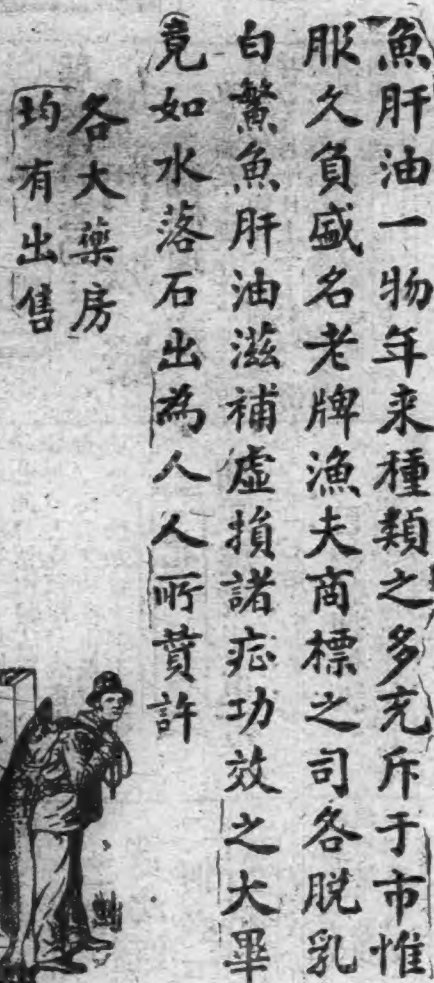 魚肝油一物年来種類之多充斥于市惟
服久負盛名老牌漁夫商標之司各脱乳
白鰵魚肝油滋補虛損諸症功效之大畢
竟如水落石出為人人所贊許
各大藥房
均有出售